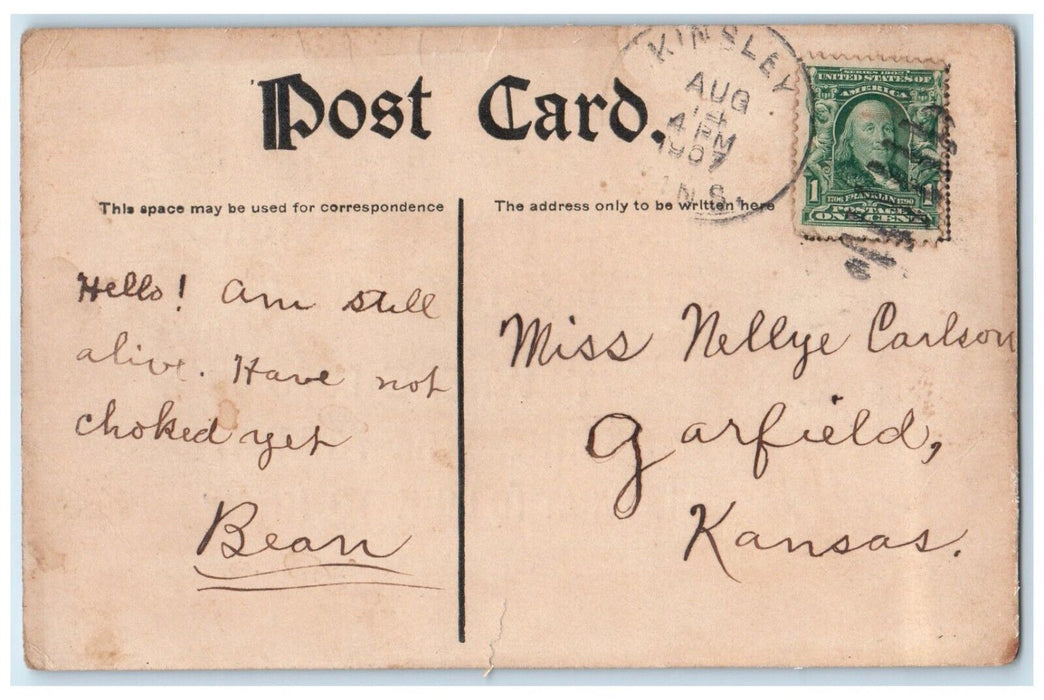 Post Card.
KINSLEY
AUG
14
4 PM
1907
SERIES 1902
UNITED STATES OF
AMERICA
1
1706 FRANKLIN 1790
POSTAGE
ONE CENT
This space may be used for correspondence
The address only to be written here
Hello! Am still
alive. Have not
choked yet
Bean
Miss Nellye Carlson
Garfield,
Kansas.